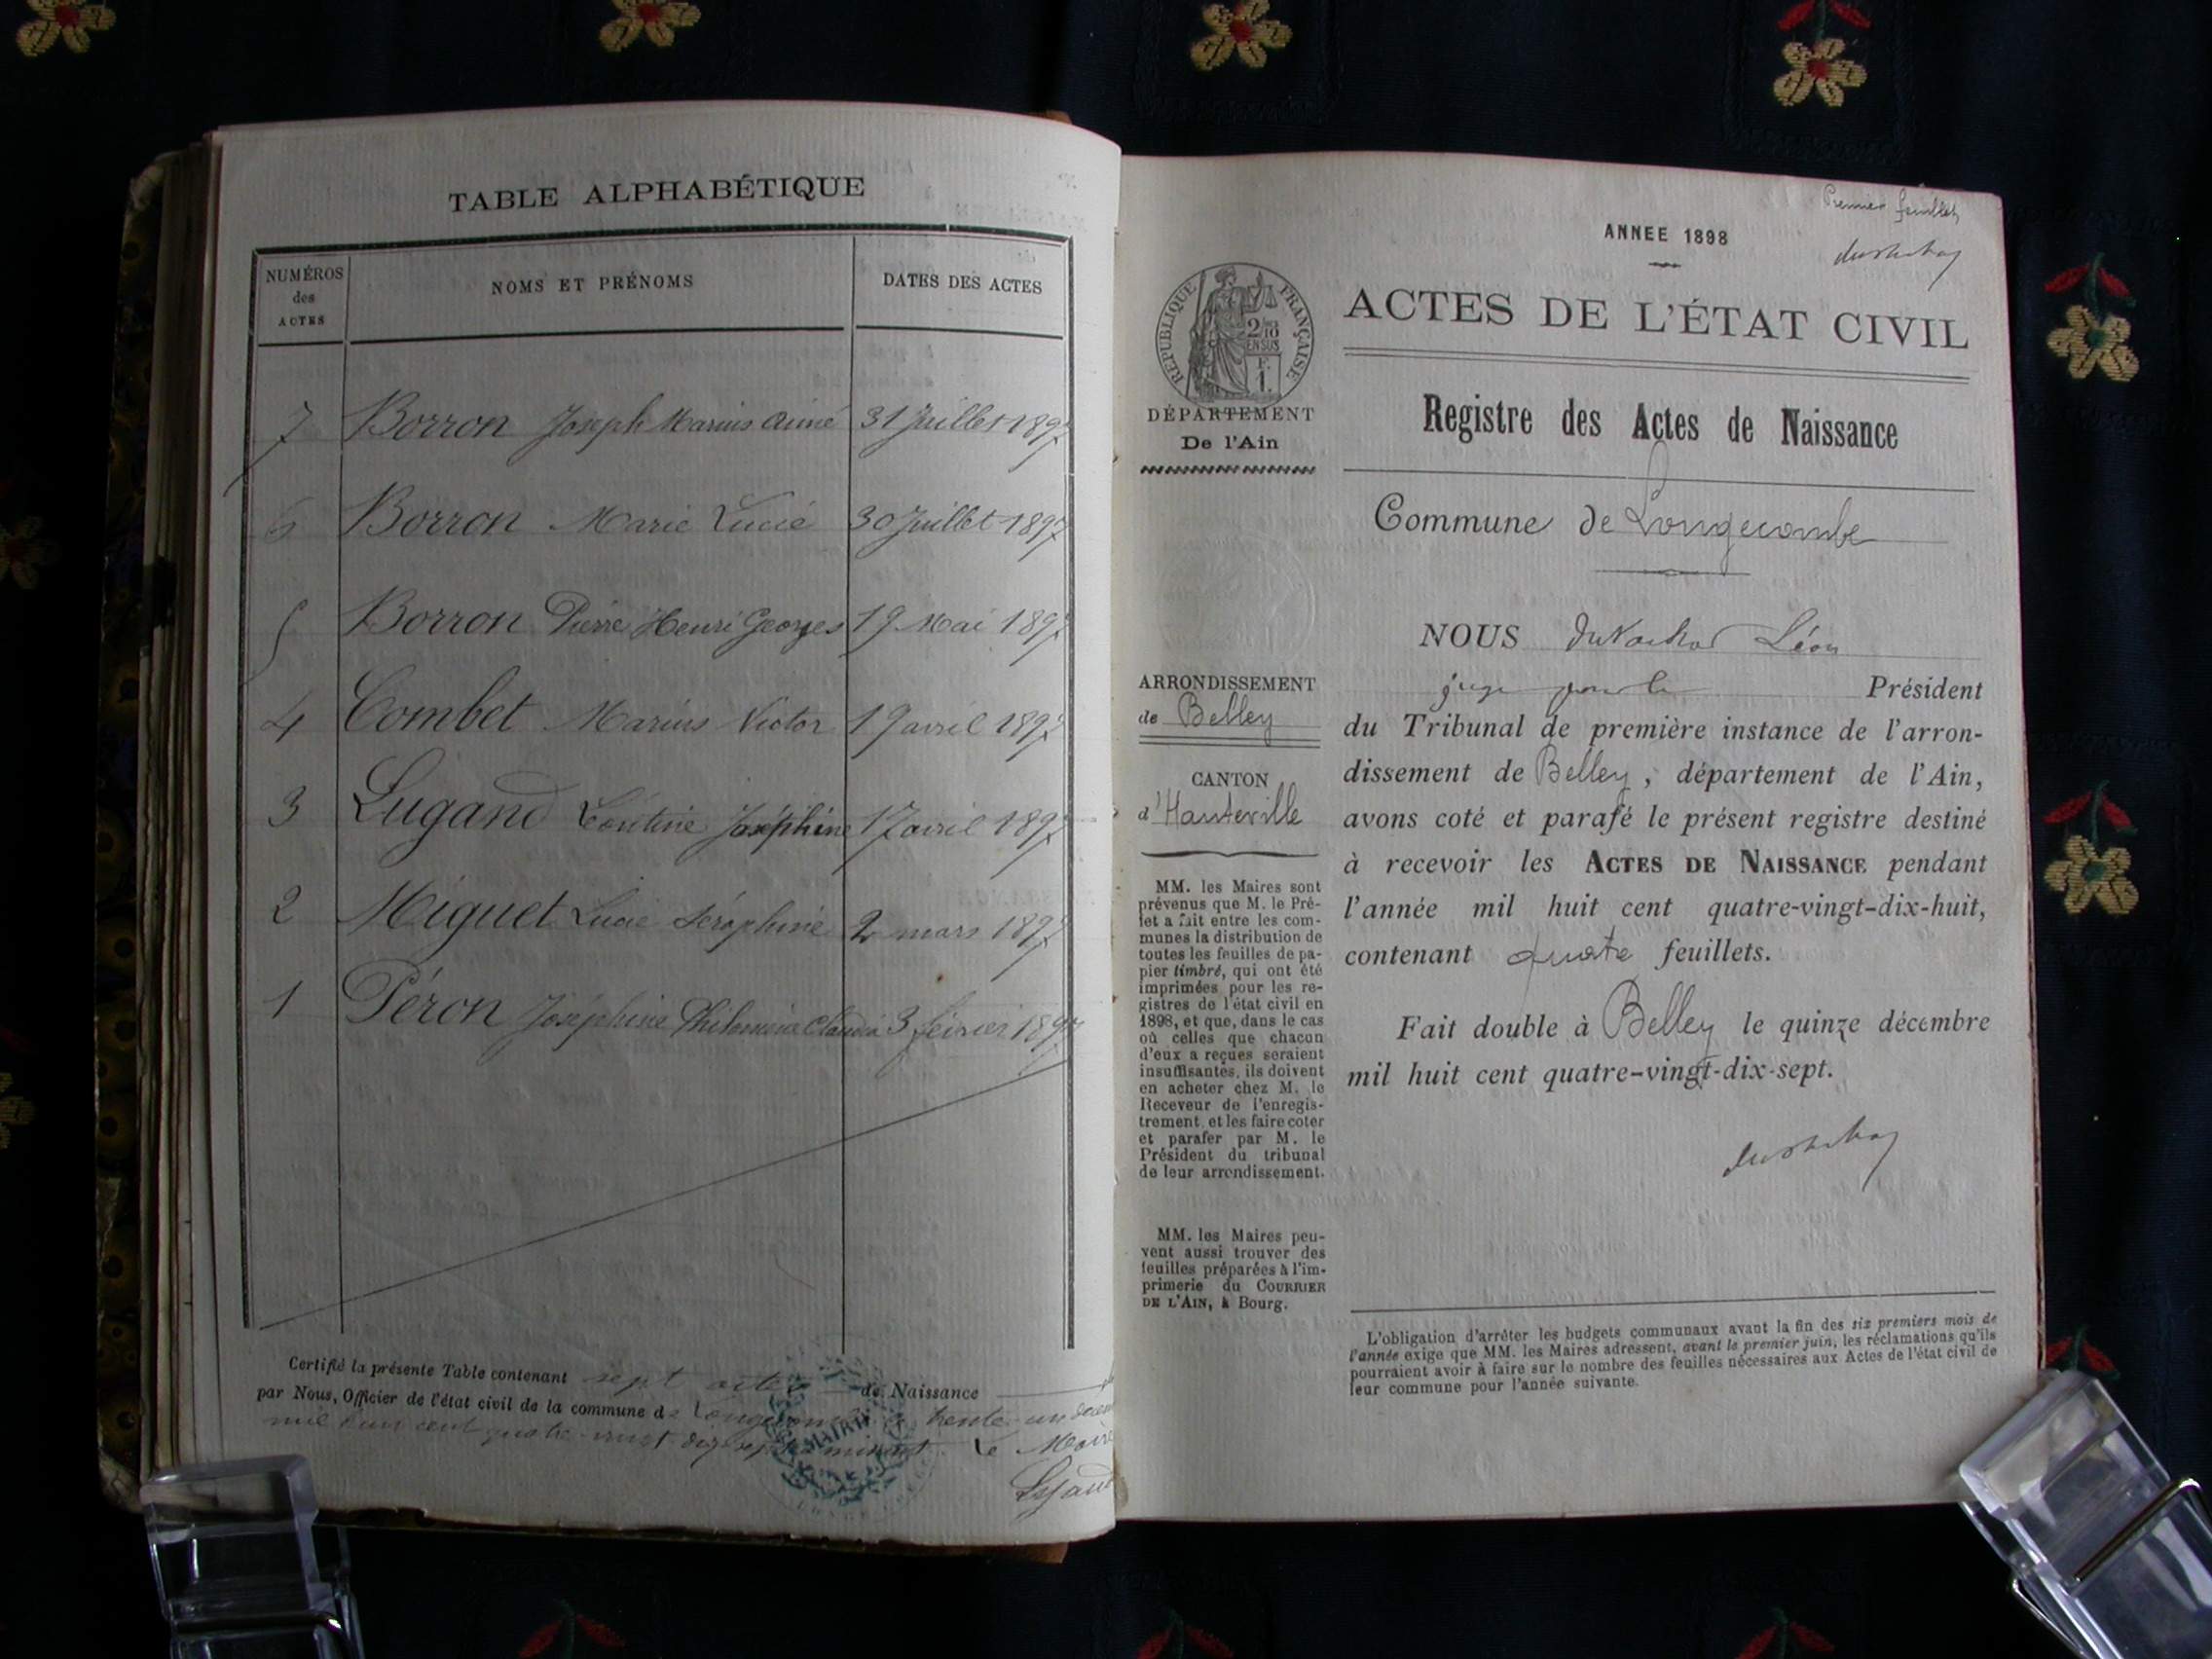 TABLE ALPHABÉTIQUE
NUMÉROS des ACTES NOMS ET PRÉNOMS DATES DES ACTES
7 Borron Joseph Marius Aimé 31 Juillet 1897
6 Borron Marie Lucie 30 Juillet 1897
5 Borron Pierre Henri Georges 19 Mai 1897
4 Combet Marius Victor 19 avril 1897
3 Lugand Léontine Joséphine 17 avril 1897
2 Miguet Lucie Séraphine 2 mars 1897
1 Péron Joséphine Philomène Claudia 3 février 1897
Certifié la présente Table contenant sept actes de Naissance
par Nous, Officier de l'état civil de la commune de Longecombe trente-un
mil huit cent quatre-vingt-dix-sept à minuit Le Maire
Premier feuillet
ANNEE 1898
RÉPUBLIQUE FRANÇAISE
2/10
EN SUS
F.
1.
DÉPARTEMENT
De l'Ain
ARRONDISSEMENT
de Belley
CANTON
d'Hauteville
MM. les Maires sont
prévenus que M. le Pré-
fet a fait entre les com-
munes la distribution de
toutes les feuilles de pa-
pier timbré, qui ont été
imprimées pour les re-
gistres de l'état civil en
1898, et que, dans le cas
où celles que chacun
d'eux a reçues seraient
insuffisantes, ils doivent
en acheter chez M. le
Receveur de l'enregis-
trement et les faire coter
et parafer par M. le
Président du tribunal
de leur arrondissement.
MM. les Maires peu-
vent aussi trouver des
feuilles préparées à l'im-
primerie du COURRIER
DE L'AIN, à Bourg.
ACTES DE L'ÉTAT CIVIL
Registre des Actes de Naissance
Commune de Longecombe
NOUS Léon
juge pour le Président
du Tribunal de première instance de l'arron-
dissement de Belley, département de l'Ain,
avons coté et parafé le présent registre destiné
à recevoir les ACTES DE NAISSANCE pendant
l'année mil huit cent quatre-vingt-dix-huit,
contenant quatre feuillets.
Fait double à Belley le quinze décembre
mil huit cent quatre-vingt-dix-sept.
L'obligation d'arrêter les budgets communaux avant la fin des six premiers mois de
l'année exige que MM. les Maires adressent, avant le premier juin, les réclamations qu'ils
pourraient avoir à faire sur le nombre des feuilles nécessaires aux Actes de l'état civil de
leur commune pour l'année suivante.